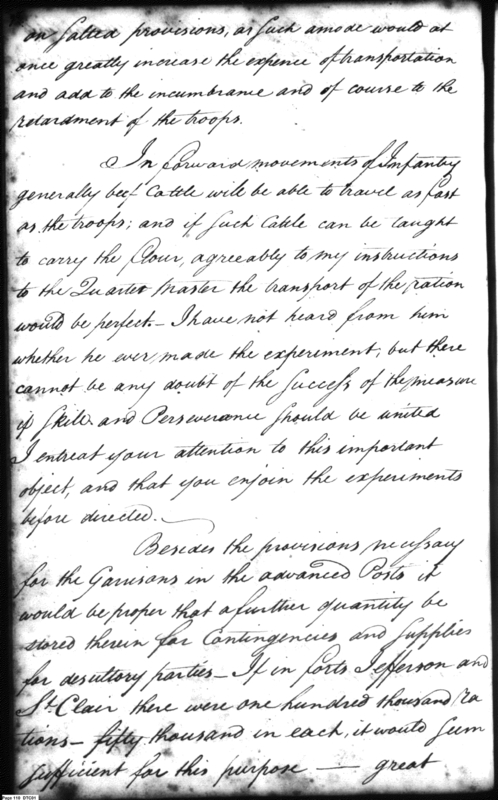 on salted provisions, as such a mode would at
once greatly increase the expence of transportation
and add to the incumbrance and of course to the
retardment of the troops.
In forward movements of Infantry
generally beef Cattle will be able to travel as fast
as the troops; and if such Cattle can be taught
to carry the flour, agreeably to my instructions
to the Quarter Master the transport of the ration
would be perfect. – I have not heard from him
whether he ever made the experiment, but there
cannot be any doubt of the success of the measure
if skill and Perseverance should be united
I entreat your attention to this important
object, and that you enjoin the experiments
before directed. –
Besides the provisions necessary
for the Garrisons in the advanced Posts it
would be proper that a further quantity be
stored therein for Contingencies and supplies
for desultory parties – If in forts Jefferson and
St. Clair there were one hundred thousand ra
tions – fifty thousand in each, it would seem
sufficient for this purpose — great
Page 119 DTC01